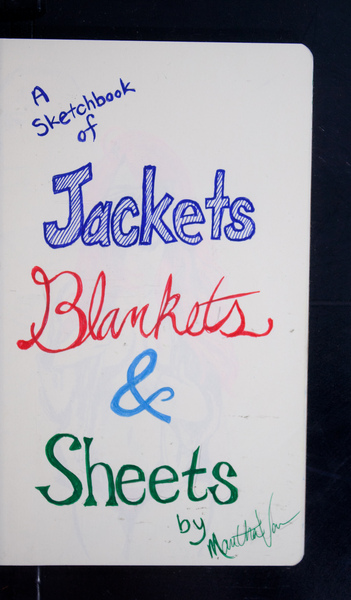 A
Sketchbook
of
Jackets
Blankets
&
Sheets
by